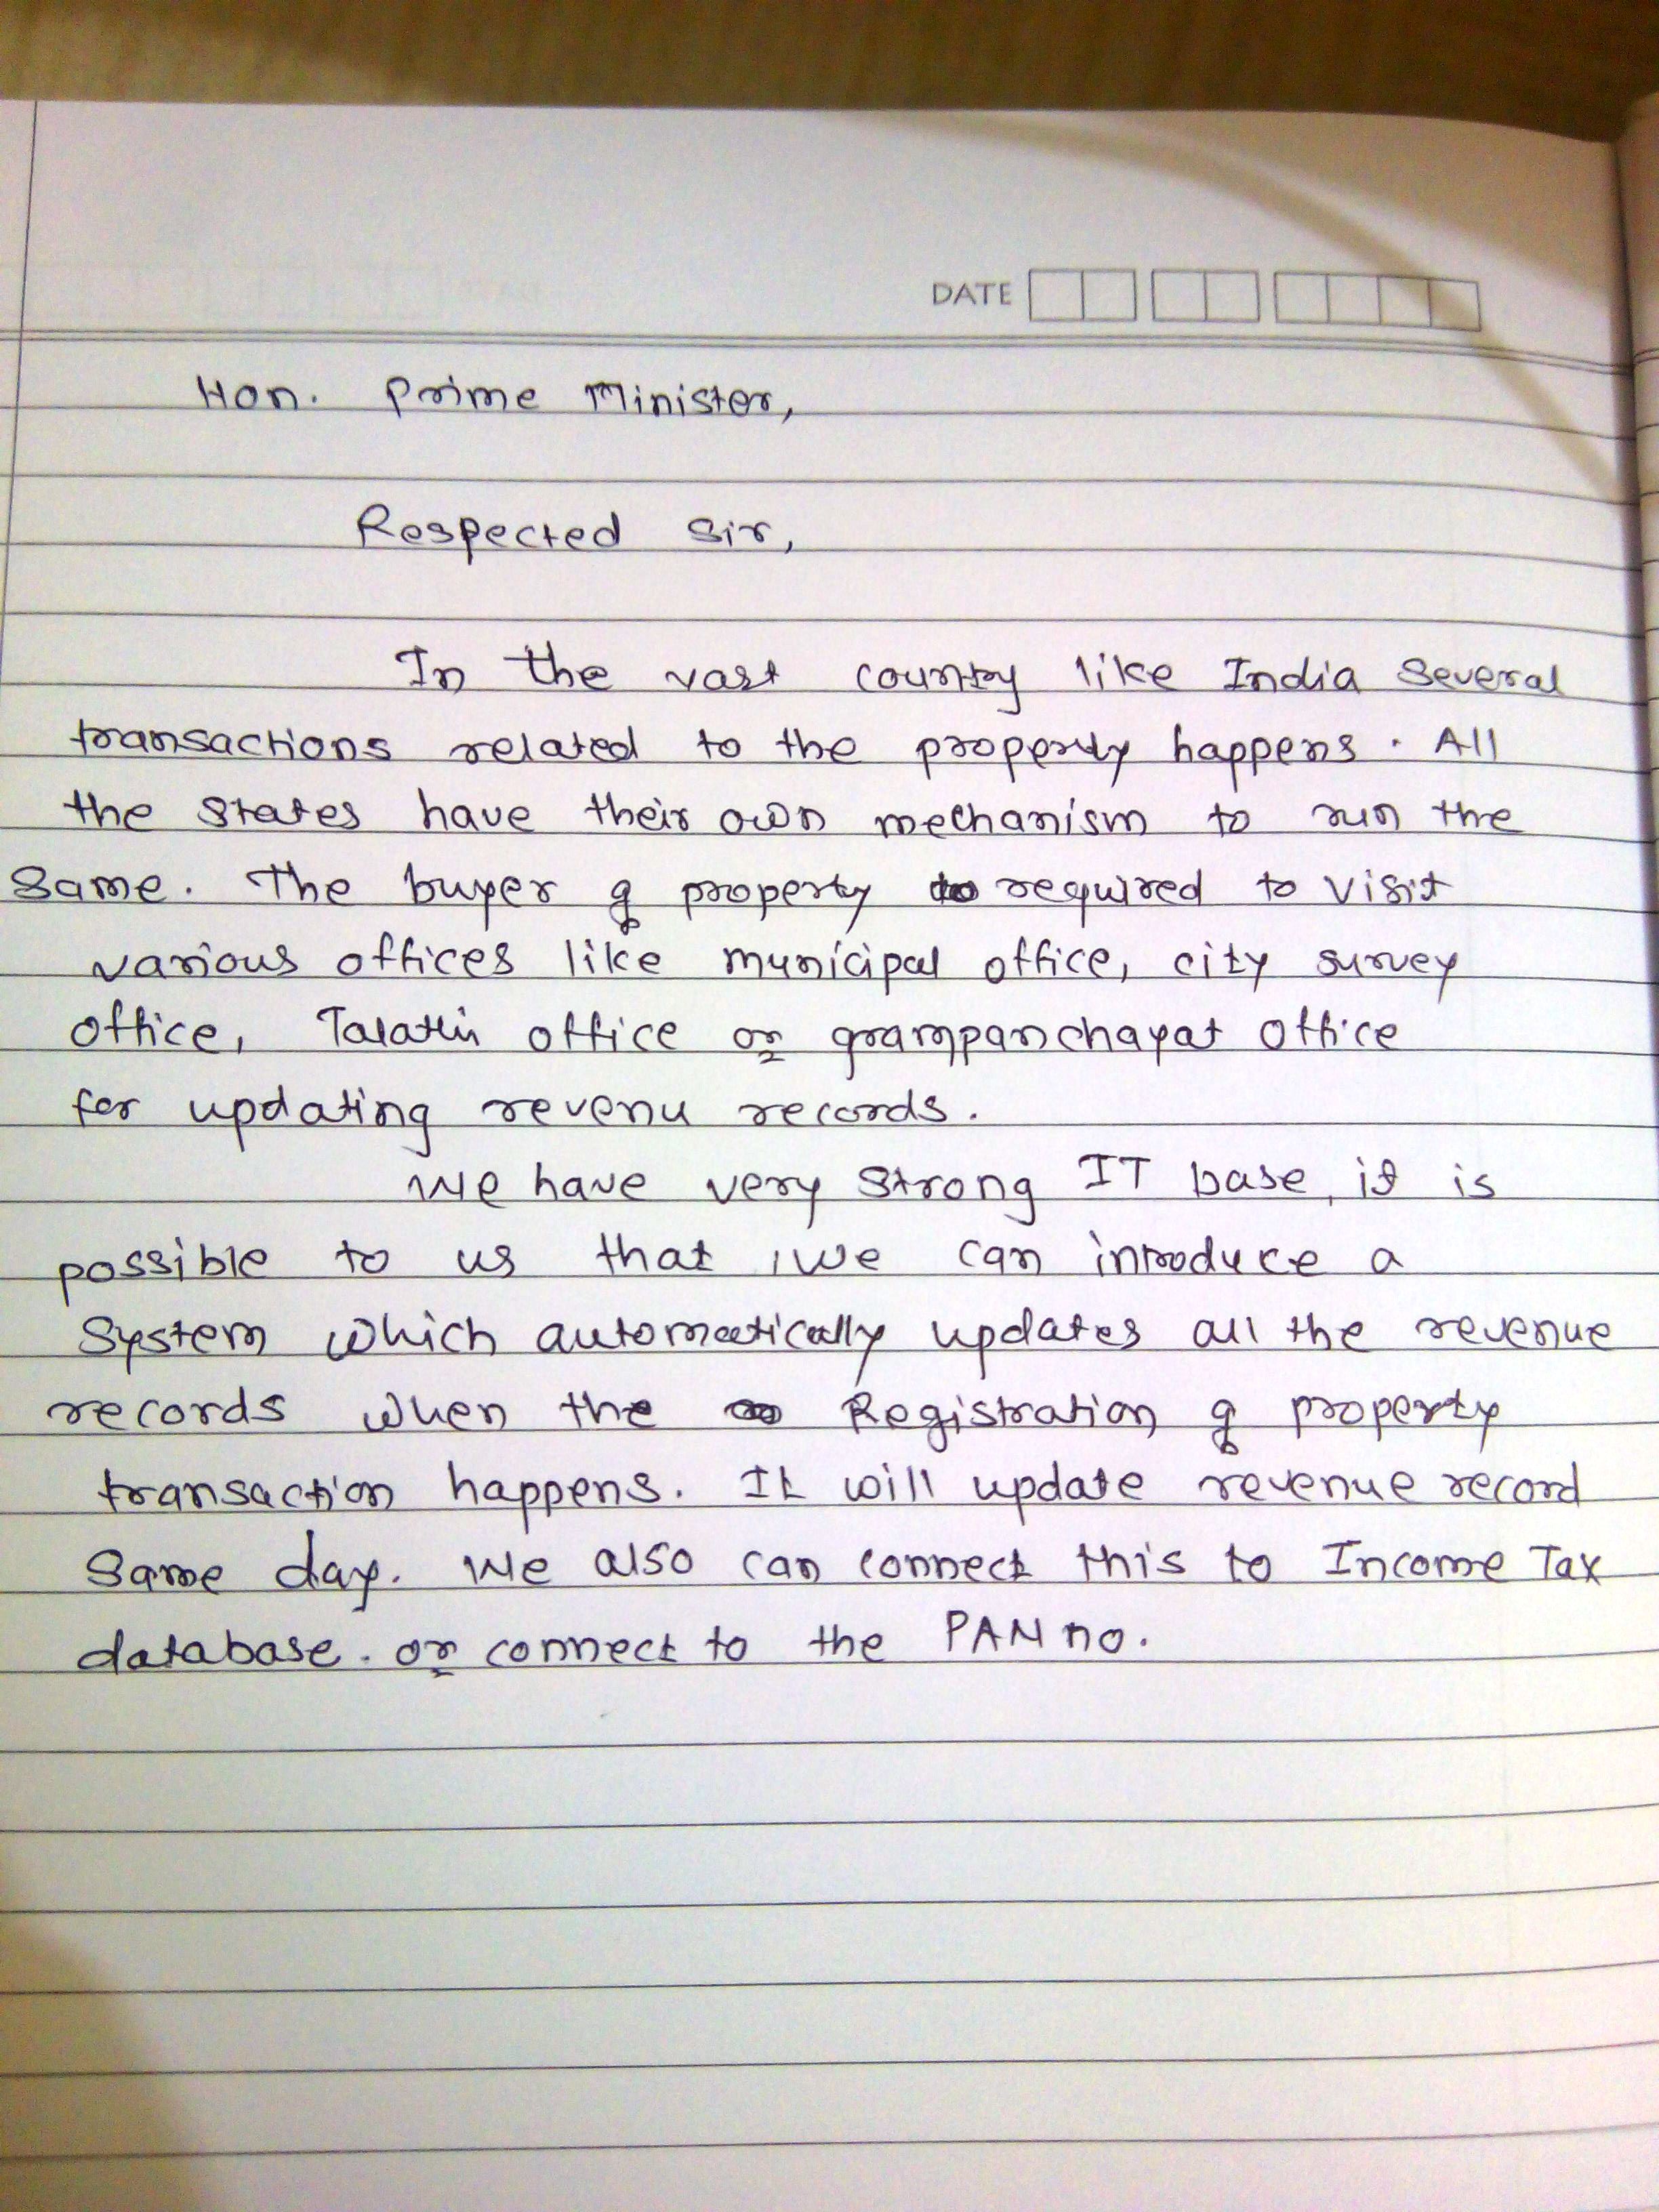 DATE
Hon. Prime Minister,
Respected Sir,
In the vast country like India several
transactions related to the property happens. All
the states have their own mechanism to run the
same. The buyer of property required to visit
various offices like municipal office, city survey
office, Talathi office or grampanchayat office
for updating revenu records.
We have very strong IT base, it is
possible to us that, we can introduce a
system which automatically updates all the revenue
records when the Registration of property
transaction happens. It will update revenue record
same day. We also can connect this to Income Tax
database. or connect to the PAN no.